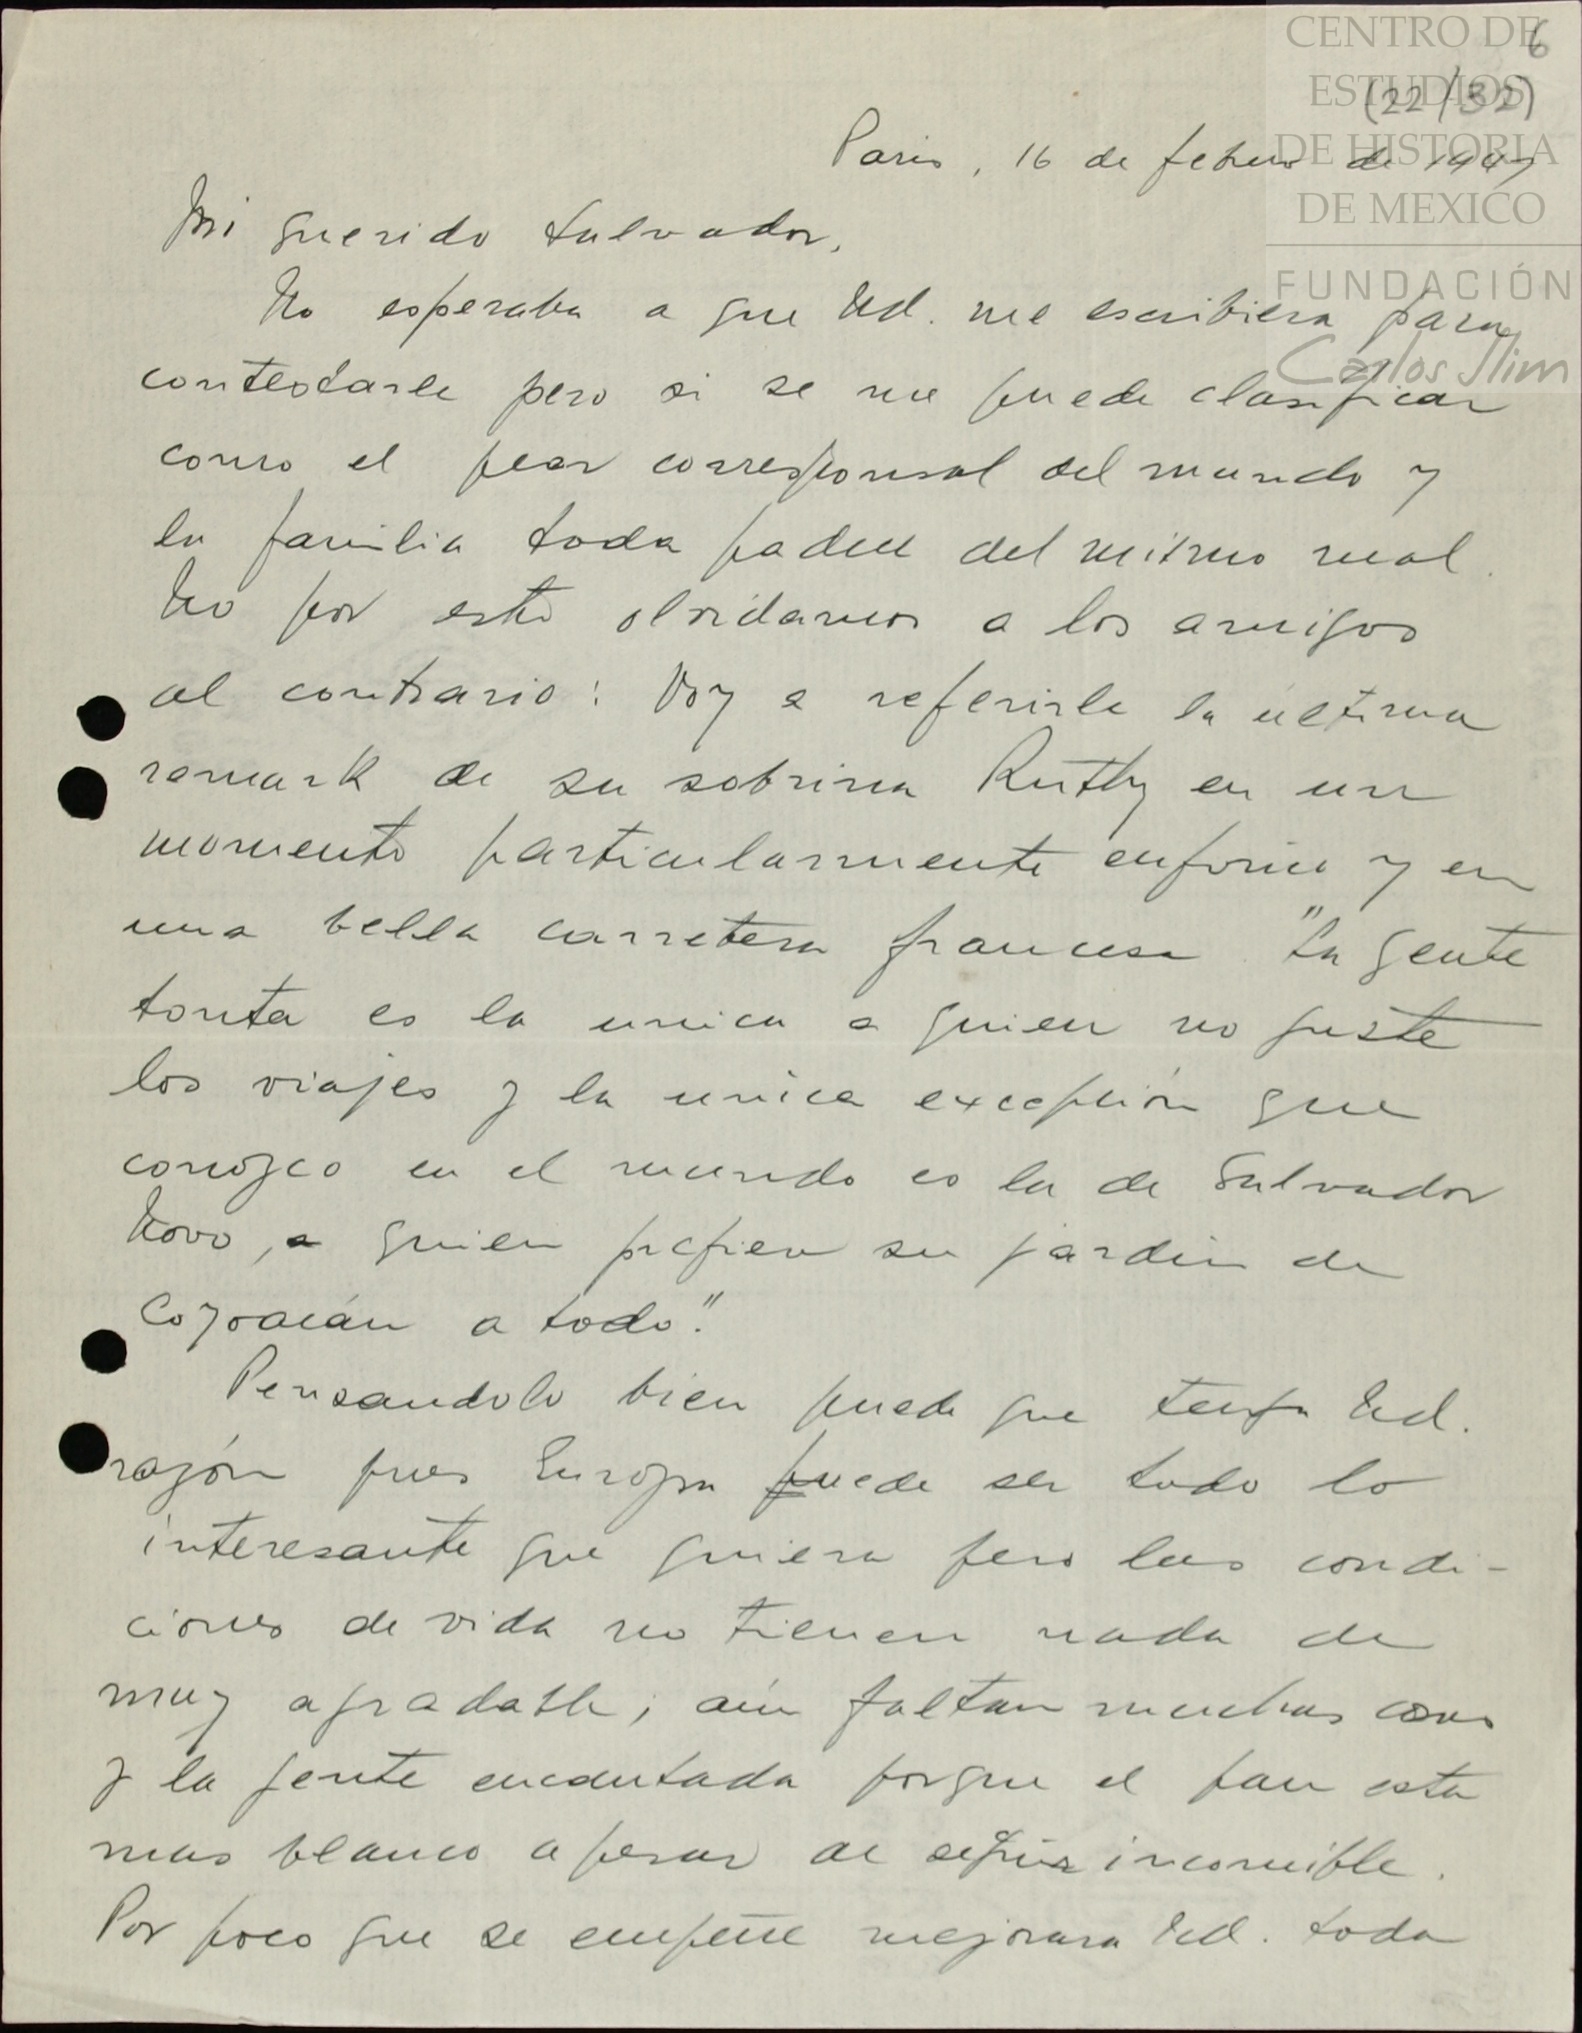 CENTRO DE
ESTUDIOS
DE HISTORIA
DE MEXICO
FUNDACIÓN
Carlos Slim
6
(22/32)
Paris, 16 de febrero de 1947
Mi querido Salvador,
No esperaba a que Ud. me escribiera para
contestarle pero si se me puede clasificar
como el peor corresponsal del mundo y
la familia toda padece del mismo mal.
No por esto olvidamos a los amigos
al contrario: Voy a referirle la última
remark de su sobrina Ruthy en un
momento particularmente euforico y en
una bella carretera francesa "La gente
tonta es la unica a quien no guste
los viajes y la unica excepción que
conozco en el mundo es la de Salvador
Novo, a quien prefiere su jardin de
Coyoacán a todo".
Pensandolo bien puede que tenga Ud.
razón pues Europa puede ser todo lo
interesante que quiera pero las condi-
ciones de vida no tienen nada de
muy agradable; aún faltan muchas cosas
y la gente encantada porque el pan esta
mas blanco a pesar de seguir incomible.
Por poco que se empeñe mejorara Ud. toda